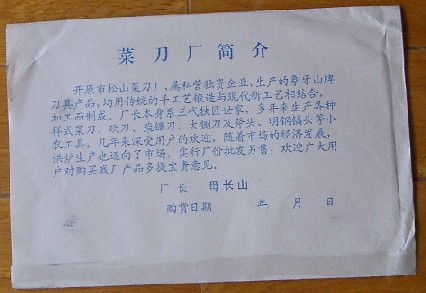 菜刀厂简介
开原市松山菜刀厂,属私营独资企业,生产的象牙山牌
刀具产品,均用传统的手工艺锻造与现代新工艺相结合,
加工而制成。厂长本身系三代铁匠世家,多年来生产各种
样式菜刀、砍刀、柴镰刀、大铡刀及斧头、明钢镐头等小
农工具,几年来深受用户的欢迎,随着市场的经济发展,
洪炉生产也迈向了市场,实行厂价批发另售,欢迎广大用
户对购买我厂产品多提宝贵意见。
厂长 母长山
购货日期 年 月 日